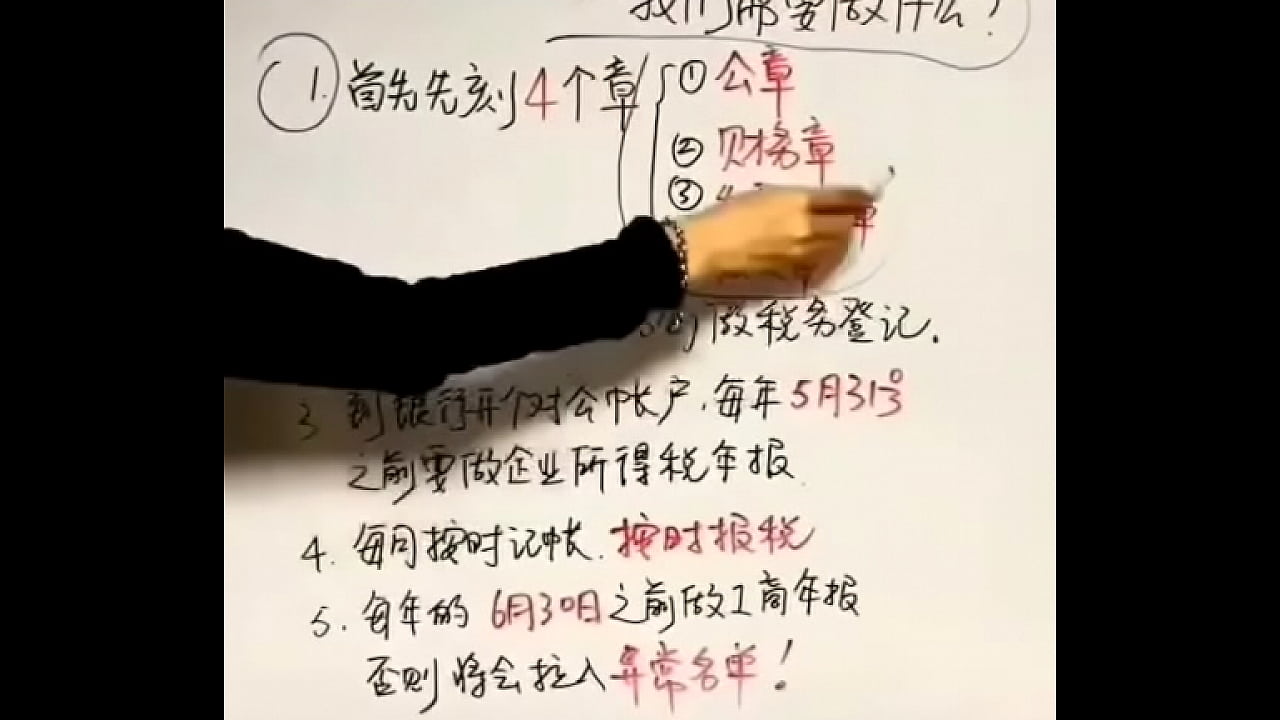 我们需要做什么!
1. 首先先刻4个章 ①公章
②财务章
③
章
做税务登记.
3 到银行开个对公帐户,每年5月31号
之前要做企业所得税年报
4. 每月按时记帐.按时报税
5. 每年的6月30日之前做工商年报
否则将会拉入异常名单!